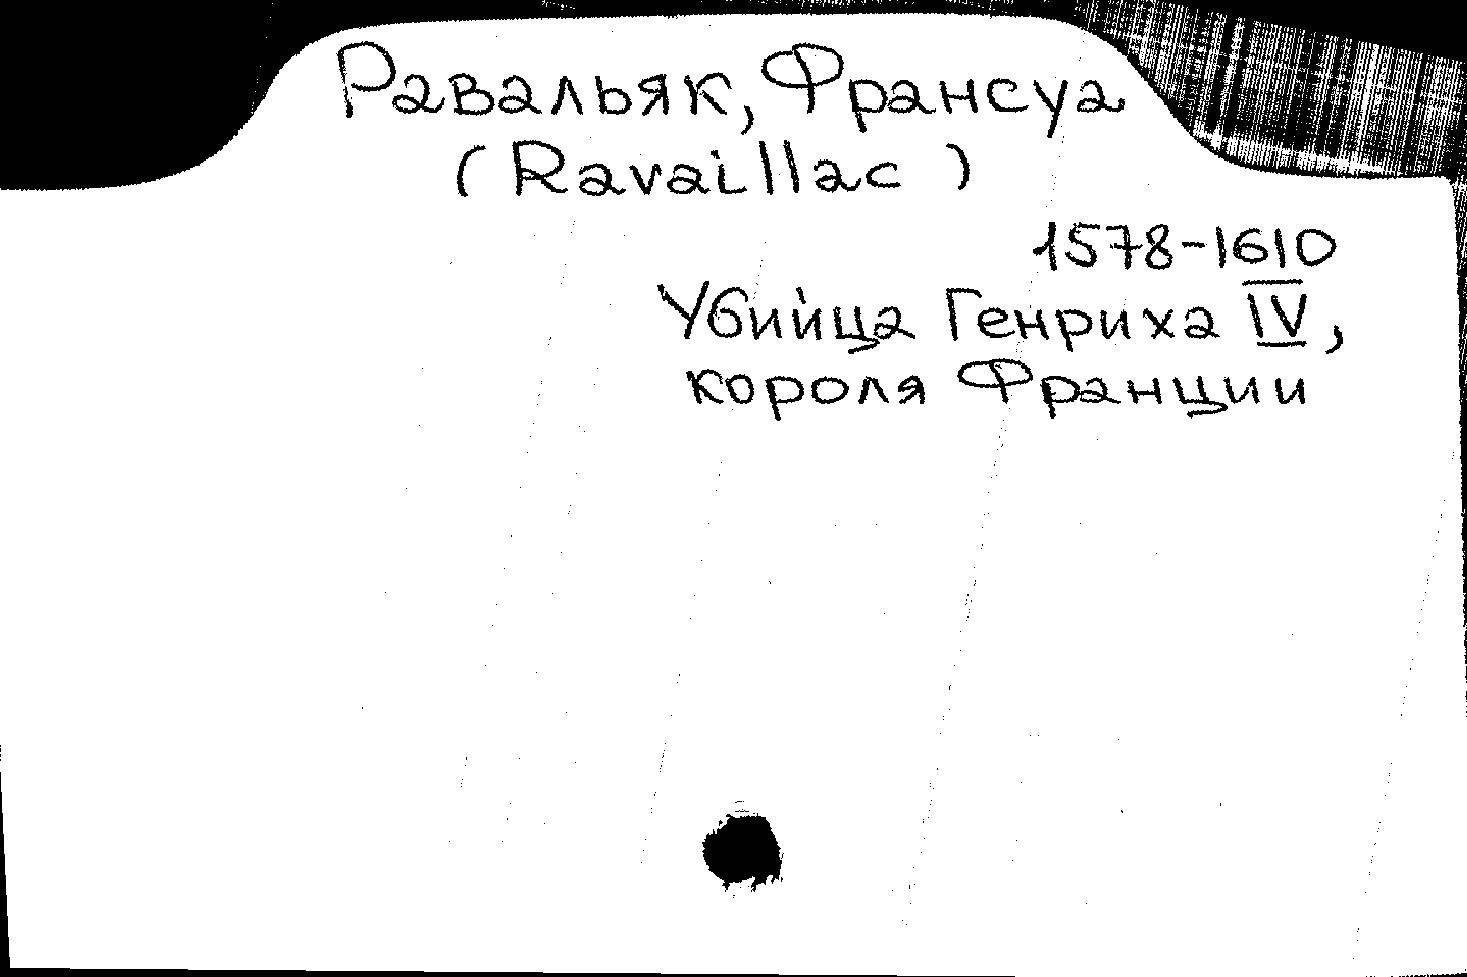 Равальяк, Франсуа
(Ravaillac)
1578-1610
Убийца Генриха IV,
короля Франции